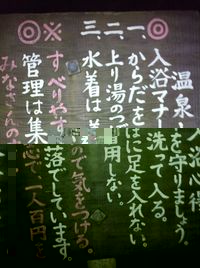 温泉入浴心得
◎入浴マナーを守りましょう。
一、からだを洗って入る。
二、上り湯のに足を入れない。
三、水着は着用しない。
※すべりやすいので気をつける。
◎管理は集落でしています。
みなさんの心で一人百円を